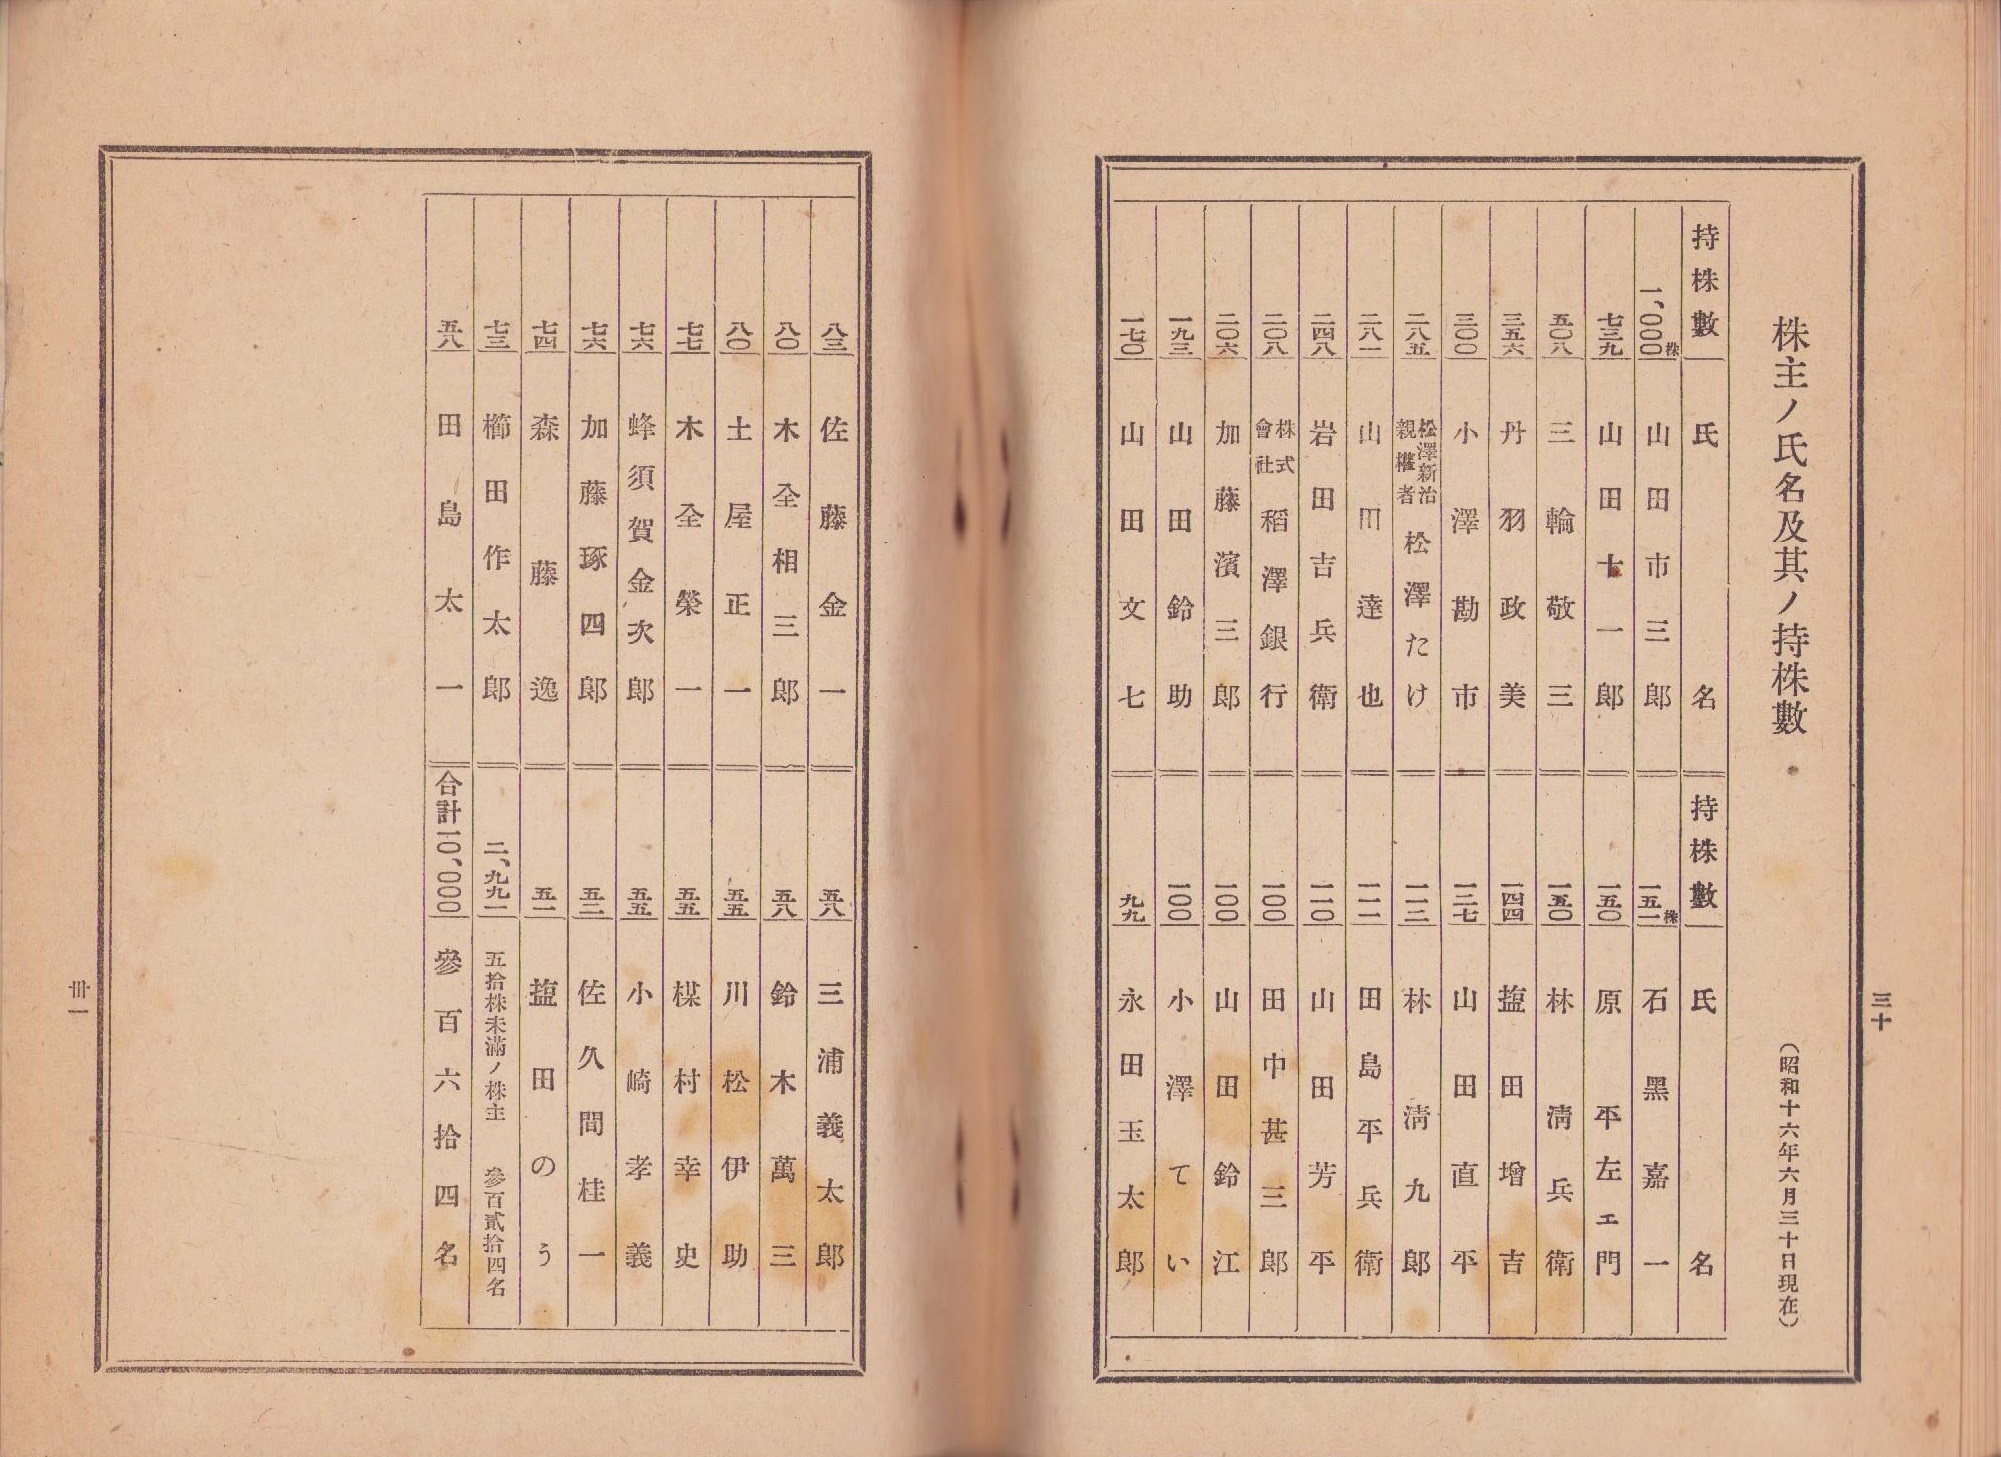 株主ノ氏名及其ノ持株數
(昭和十六年六月三十日現在)
持株數 氏名
一、〇〇〇株 山田市三郎
七三九 山田十一郎
五〇八 三輪敬三
三五六 丹羽政美
三〇〇 小澤勘市
二八五 松澤新治親權者 松澤たけ
二八一 山田達也
二四八 岩田吉兵衛
二〇八 株式會社 稻澤銀行
二〇六 加藤濱三郎
一九三 山田鈴助
一七〇 山田文七
持株數 氏名
一五一株 石黑嘉一
一五〇 原平左エ門
一五〇 林淸兵衛
一四四 塩田增吉
一二七 山田直平
一一三 林淸九郎
一一一 田島平兵衛
一一〇 山田芳平
一〇〇 田中甚三郎
一〇〇 山田鈴江
一〇〇 小澤てい
九九 永田玉太郎
三十
八三 佐藤金一
八〇 木全相三郎
八〇 土屋正一
七七 木全榮一
七六 蜂須賀金次郎
七六 加藤琢四郎
七四 森藤逸
七三 櫛田作太郎
五八 田島太一
五八 三浦義太郎
五八 鈴木萬三
五五 川松伊助
五五 楳村幸史
五五 小崎孝義
五二 佐久間桂一
五一 塩田のう
二、九九一 五拾株未滿ノ株主 參百貳拾四名
合計一〇、〇〇〇 參百六拾四名
卅一